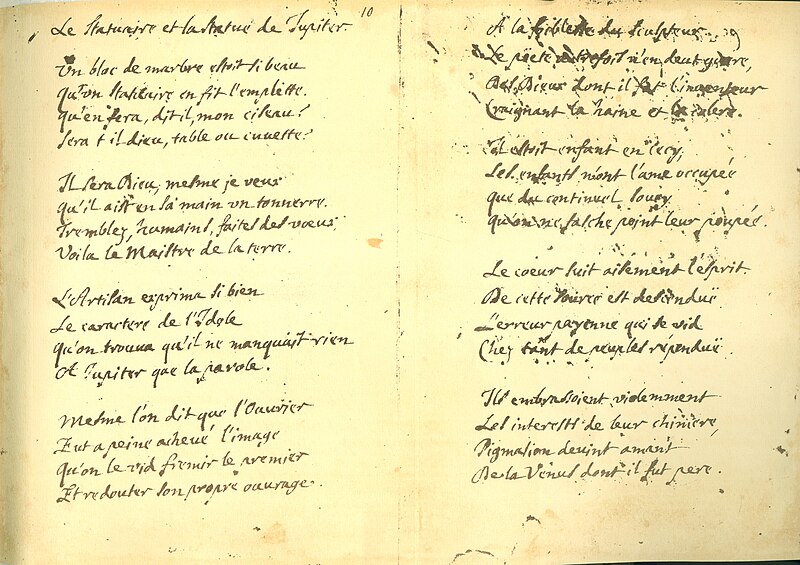 10
Le Statuaire et la statue de Jupiter.
Un bloc de marbre estoit si beau
Qu'un statuaire en fit l'emplette.
Qu'en fera, dit il, mon ciseau?
Sera t il dieu, table ou cuvette?
Il sera Dieu, mesme je veus
Qu'il ait en sa main un tonnerre.
Tremblez, humains, faites des vœus,
Voila le Maistre de la terre.
L'Artisan exprima si bien
Le caractere de l'Idole
Qu'on trouva qu'il ne manquait rien
A Jupiter que la parole.
Mesme l'on dit que l'Ouvrier
Eut a peine achevé l'image
Qu'on le vid fremir le premier
Et redouter son propre ouvrage.
A la foiblesse du sculpteur
Le poëte autrefois n'en deut guere,
Des Dieux dont il fut l'inventeur
Craignant la haine et la colere.
Il estoit enfant en cecy,
Les enfants n'ont l'ame occupée
que du continuel soucy
qu'on ne fasche point leur poupée.
Le coeur suit aisement l'esprit.
De cette source est descenduë
L'erreur payenne qui se vid
Chez tant de peuples répenduë.
Ils embrassoient videmment
Les interests de leur chimere,
Pigmalion devint amant
De la Venus dont il fut pere.